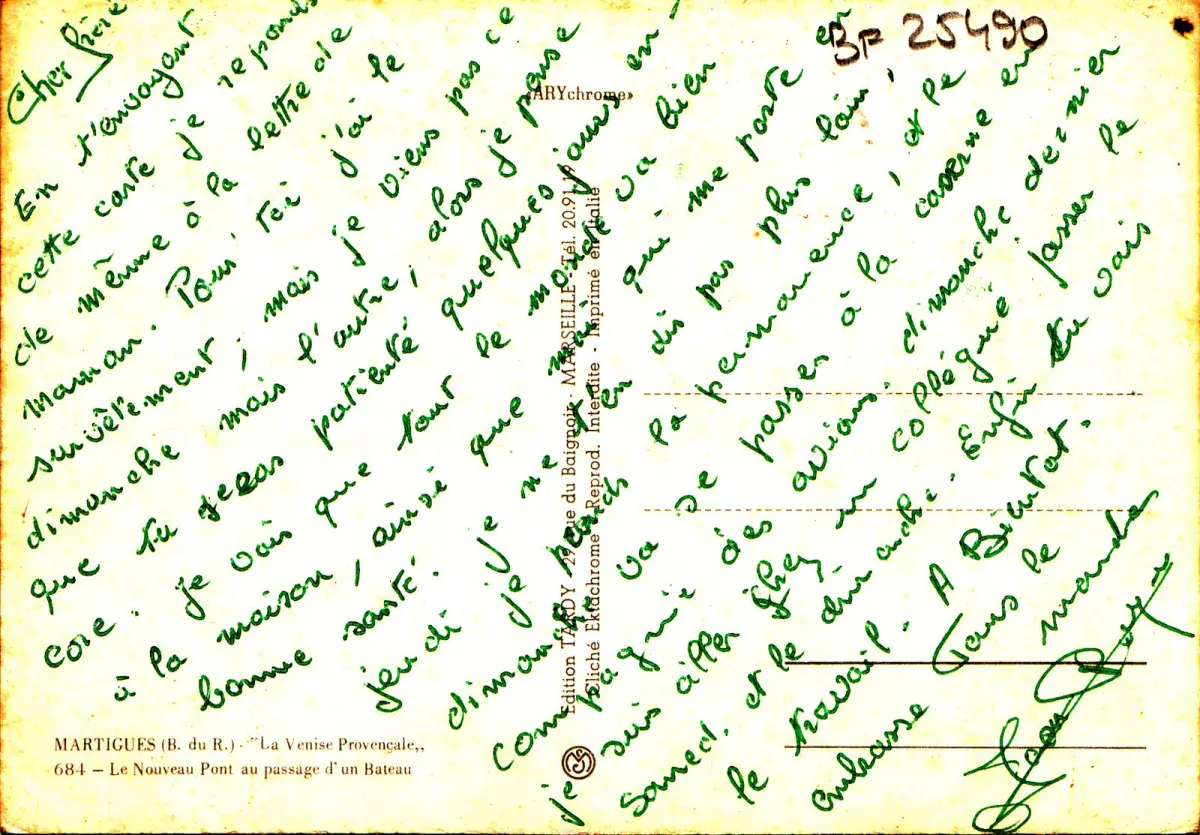 Cher frère
En t'envoyant
cette carte je reponds
de même à la lettre de
maman. Pour toi j'ai le
survêtement, mais je viens pas ce
dimanche mais l'autre, alors je pense
que tu seras patienté quelques jours en-
core. je vois que tout le monde va bien
à la maison, ainsi que moi qui me porte en
bonne santé. Je ne j'en dis pas plus loin,
jeudi je prends la permanence, et le
dimanche va se passer à la caserne en
compagnie des avions. dimanche dernier
je suis aller chez un collégue passer le
samedi et le dimanche. Enfin tu vois
le travail. A Bientot.
embasse Tous le monde
Jean
BF 25490
«ARYchrome»
Edition TARDY - 29, rue du Baignoir - MARSEILLE - Tél. 20.91.19
Cliché Ektachrome Reprod. Interdite - Imprimé en Italie
MARTIGUES (B. du R.) - "La Venise Provençale,,
684 – Le Nouveau Pont au passage d'un Bateau